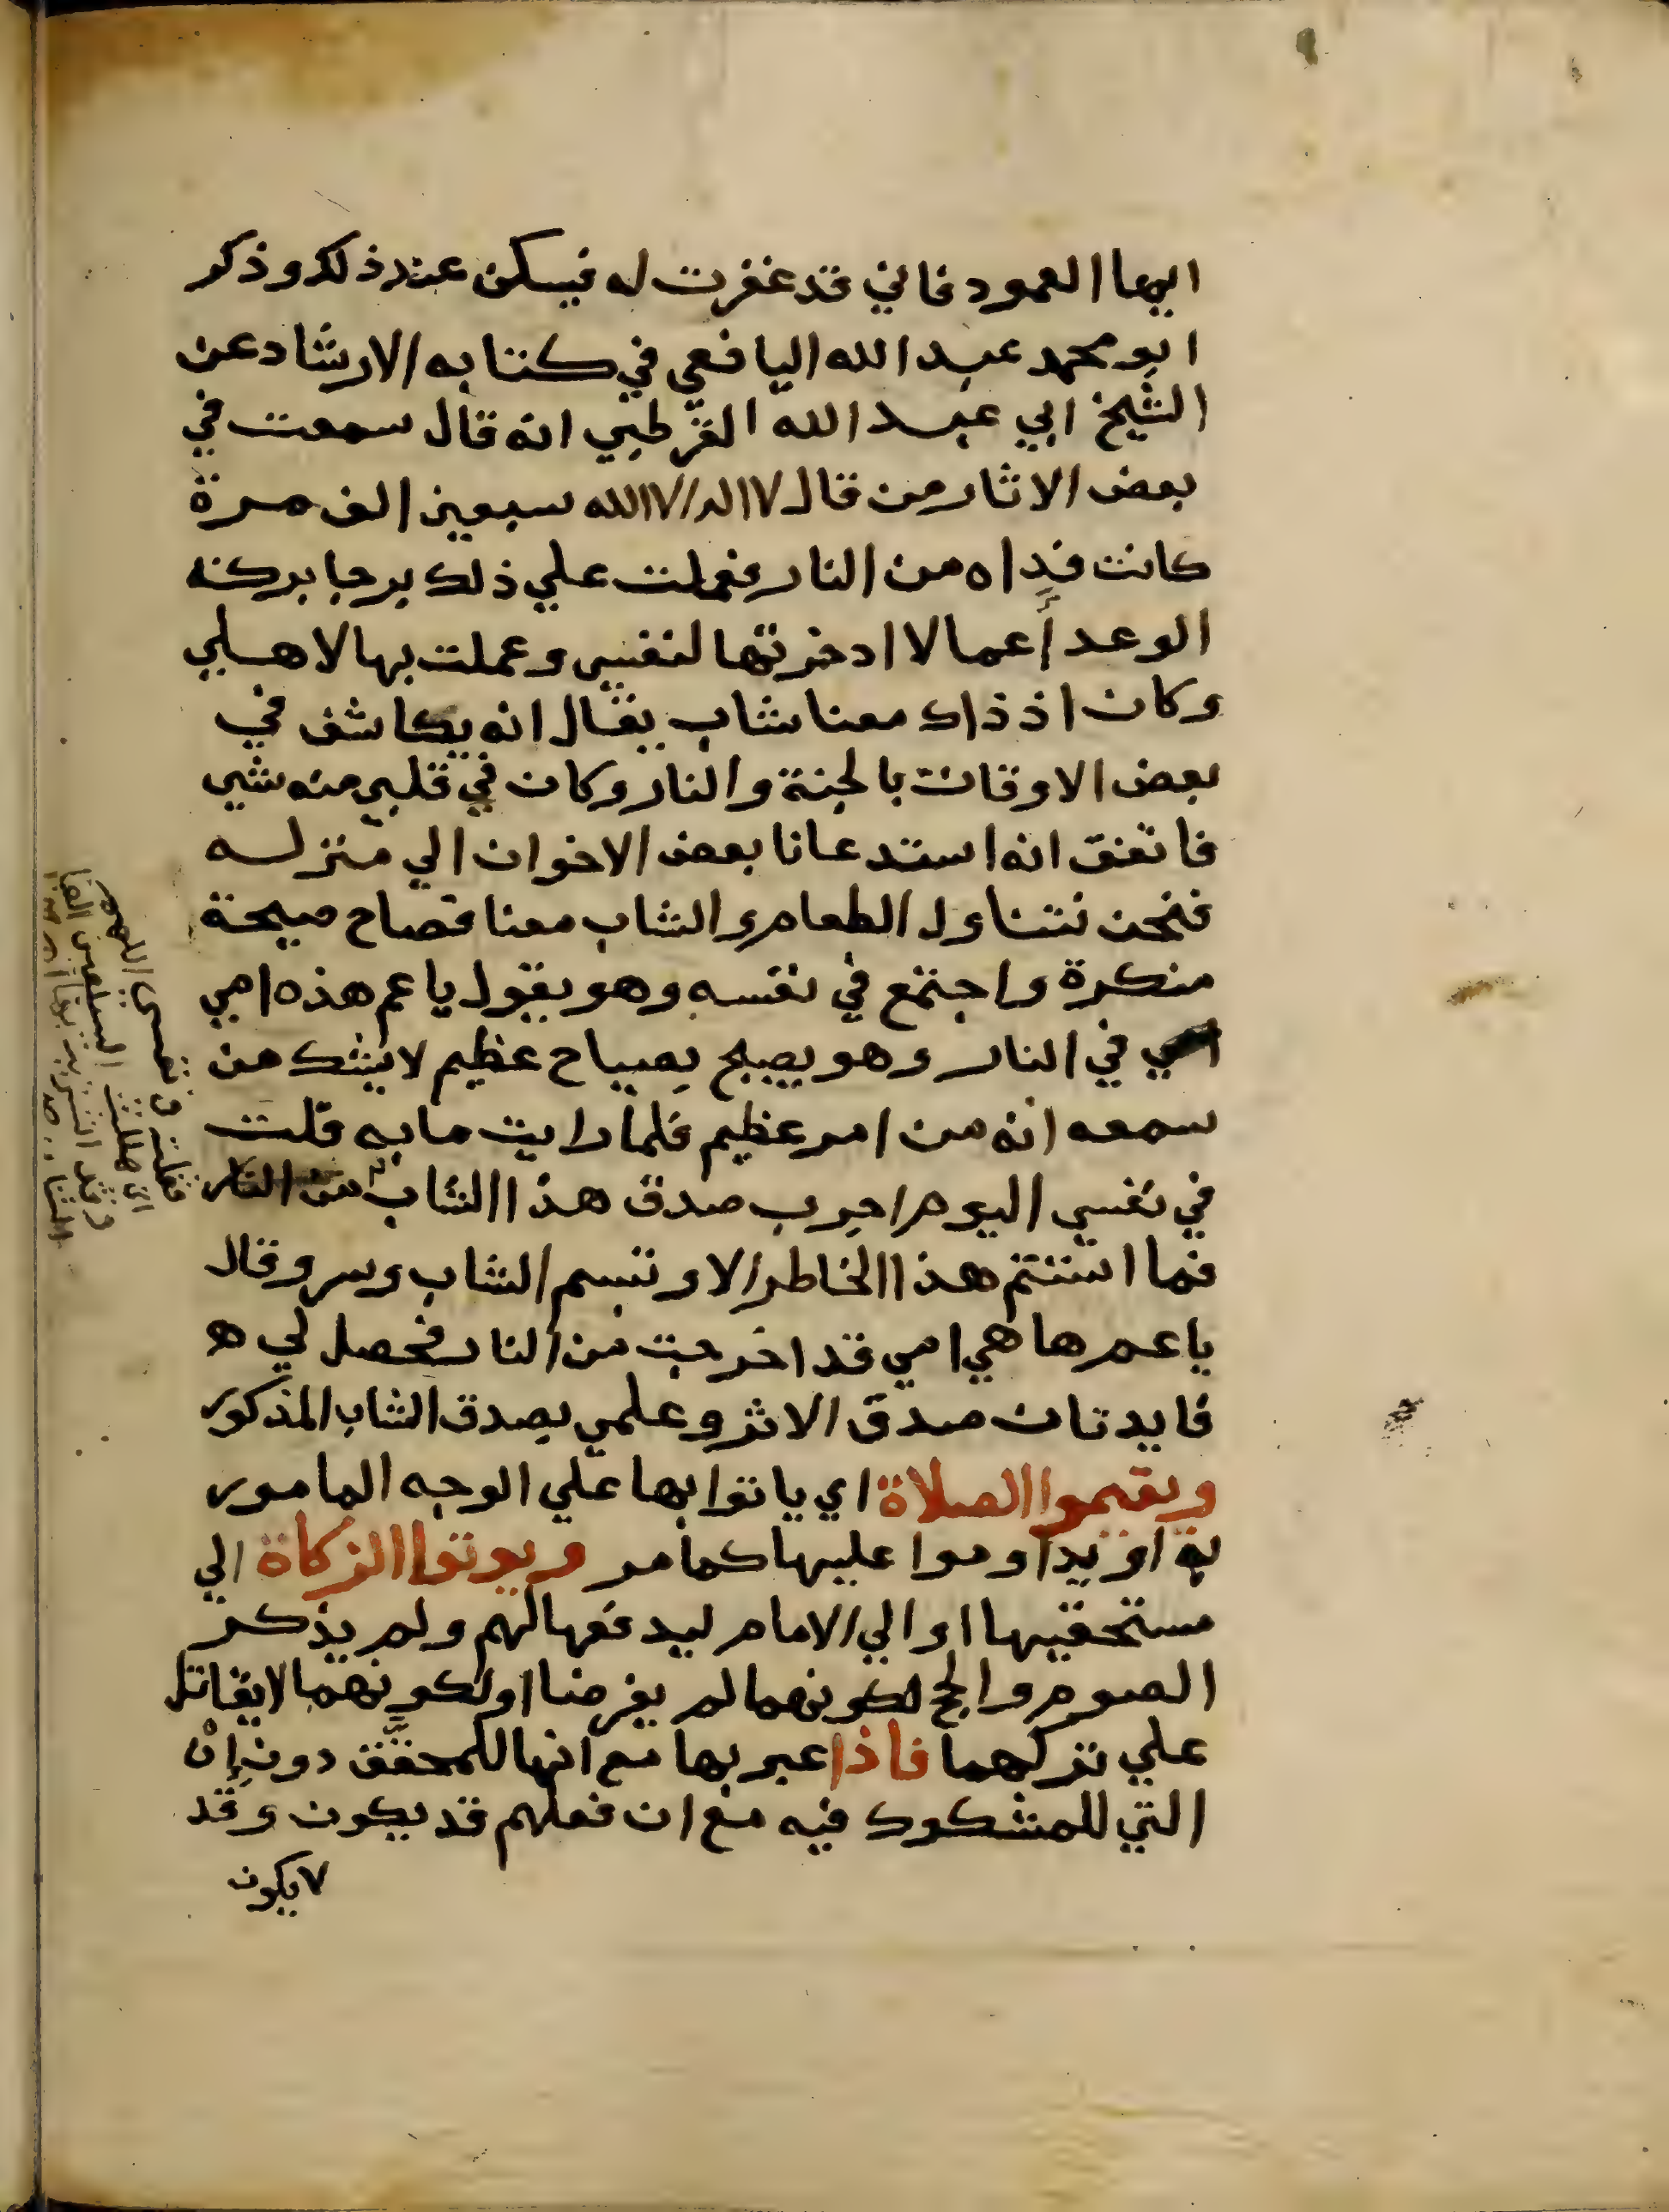 ايها العمود فاني قد غفرت له فيسكن عند ذلك وذكر
ابو محمد عبد الله اليافعي في كتابه الارشاد عن
الشيخ ابي عبد الله القرطبي انه قال سمعت في
بعض الاثار من قال لا اله الا الله سبعين الف مرة
كانت فداه من النار فعملت علي ذلك برجا بركة
الوعد أعمالا ادخرتها لنفسي وعملت بها لاهلي
وكان اذ ذاك معنا شاب يقال انه يكاشف في
بعض الاوقات بالجنة والنار وكان في قلبي منه شي
فاتفق انه استدعانا بعض الاخوان الي منزله
فنحن نتناول الطعام والشاب معنا فصاح صيحة
منكرة واجتمع في نفسه وهو يقول يا عم هذه امي
في النار وهو يصيح بصياح عظيم لا يشك من
سمعه انه من امر عظيم فلما رايت ما به قلت
في نفسي اليوم اجرب صدق هذا الشاب من النار
فما استتم هذا الخاطر الا وتبسم الشاب وسر وقال
يا عم ها هي امي قد اخرجت من النار فحصل لي ه
فايدتان صدق الاثر وعلمي بصدق الشاب المذكور
ويقيموا الصلاة اي ياتوا بها علي الوجه المامور
به او يداوموا عليها كما مر ويوتوا الزكاة الي
مستحقيها او الي الامام ليدفعها لهم ولم يذكر
الصوم والحج لكونهما لم يفرضا او لكونهما لا يقاتل
علي تركهما فاذا عبر بها مع انها للمحقَّق دون إنْ
التي للمشكوك فيه مع ان فعلهم قد يكون وقد
لا يكون
فقلت في نفسي اللهم
اني هللت السبعين الفا